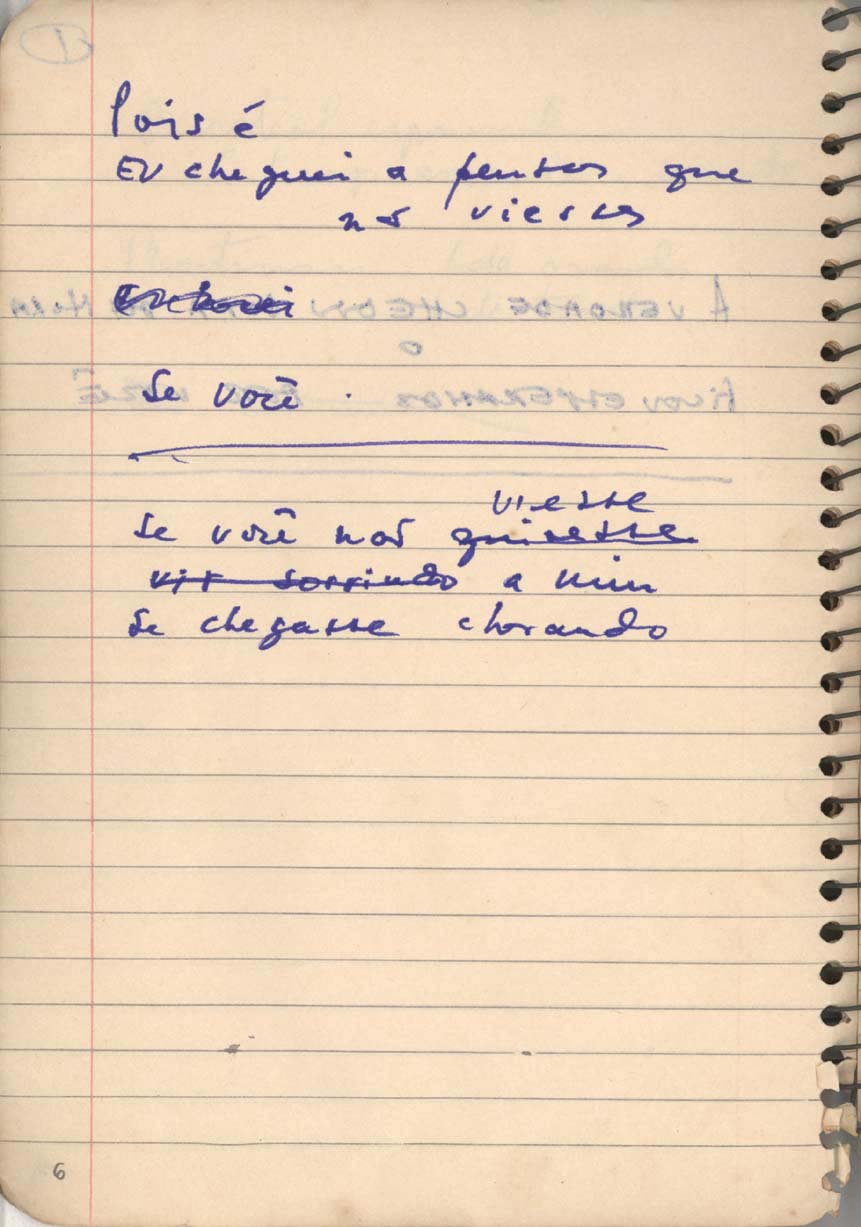 Pois é
EU cheguei a pensar que
não vieras
Se você .
viesse
Se você não quisesse
vir sorrindo a mim
Se chegasse chorando
6